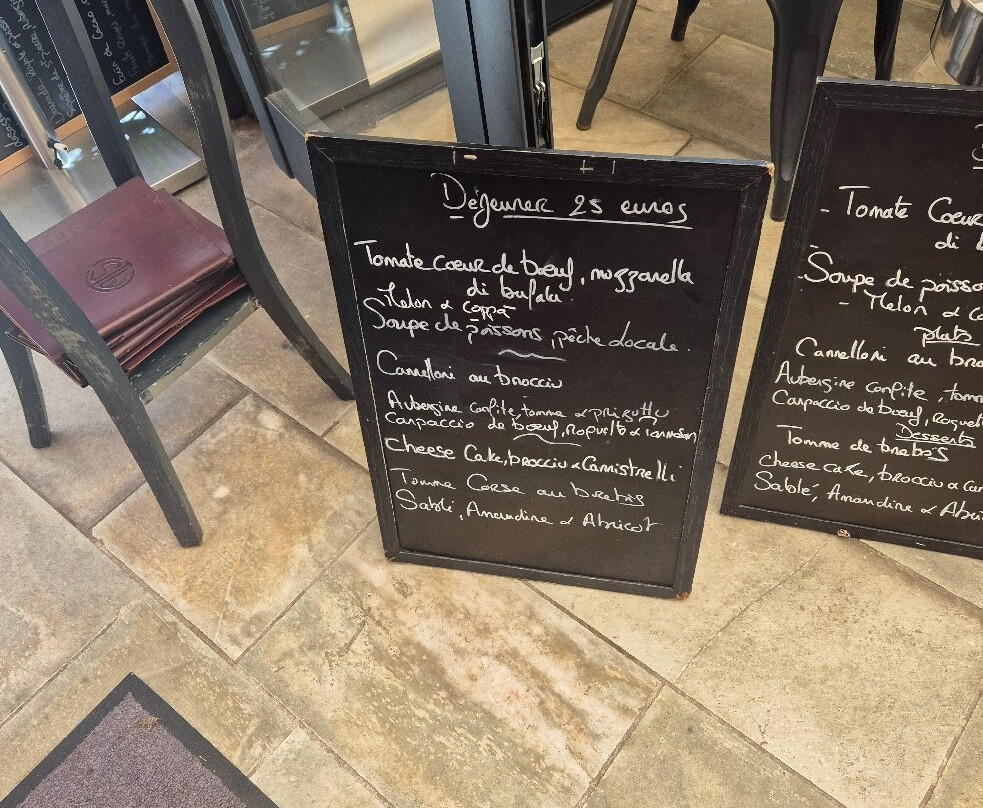 Déjeuner 25 euros
Tomate cœur de bœuf, mozzarella
di bufala
Melon & coppa
Soupe de poissons, pêche locale.
Cannelloni au brocciu
Aubergine confite, tomme & prizuttu
Carpaccio de bœuf, roquette &
Cheese Cake, brocciu & Cannistrelli
Tomme Corse au brebis
Sablé, Amandine & Abricot
- Tomate Coeur
di
- Soupe de poisso
- Melon & co
plats
Cannelloni au bro
Aubergine confite, tom
Carpaccio de bœuf, Roquet
Desserts
Tomme de brebis
cheese cake, brocciu & Can
Sablé, Amandine & Abri